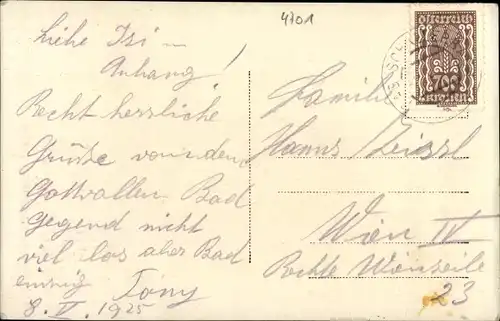 4701
Liebe Isi –
Anhang!
Recht herzliche
Grüße von dem
Gottvollen Bad
Gegend nicht
viel los aber Bad
einzig Tony
8. V. 1925
Österreich
700
Kronen
Familie
Hanns Zeissl
Wien IV
Rechte Wienzeile
23